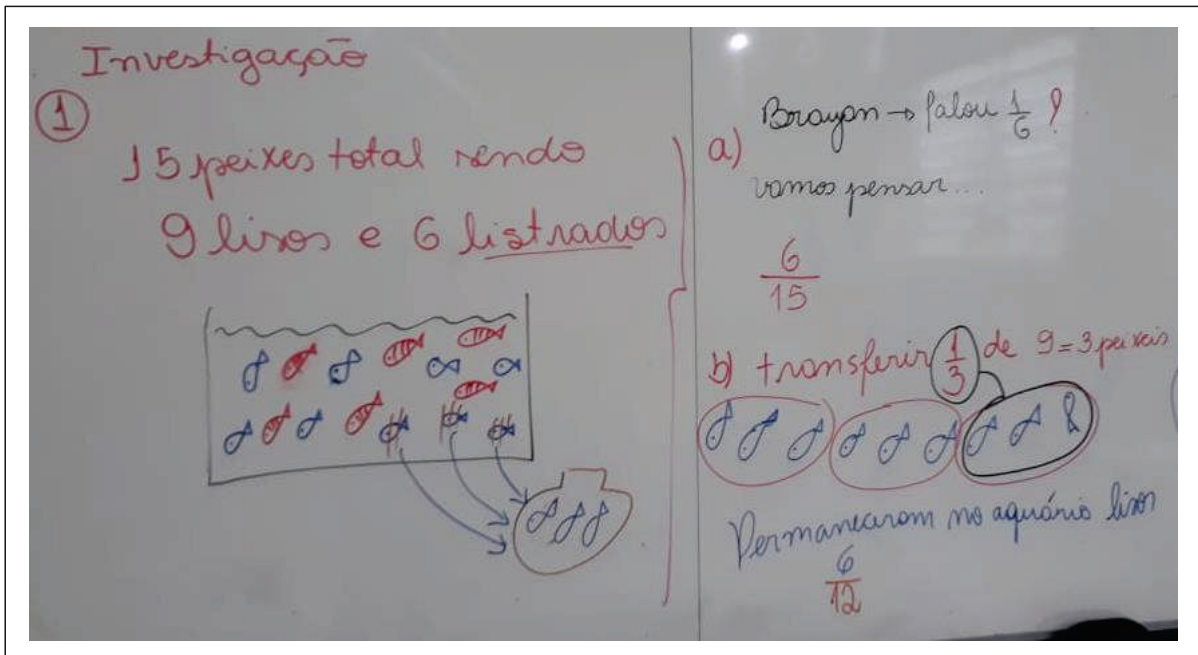 Investigação
1
15 peixes total sendo
9 lisos e 6 listrados
a) Brayan → falou 1/6 ?
vamos pensar...
6/15
b) transferir 1/3 de 9 = 3 peixeis
Permaneceram no aquário lisos
6/12